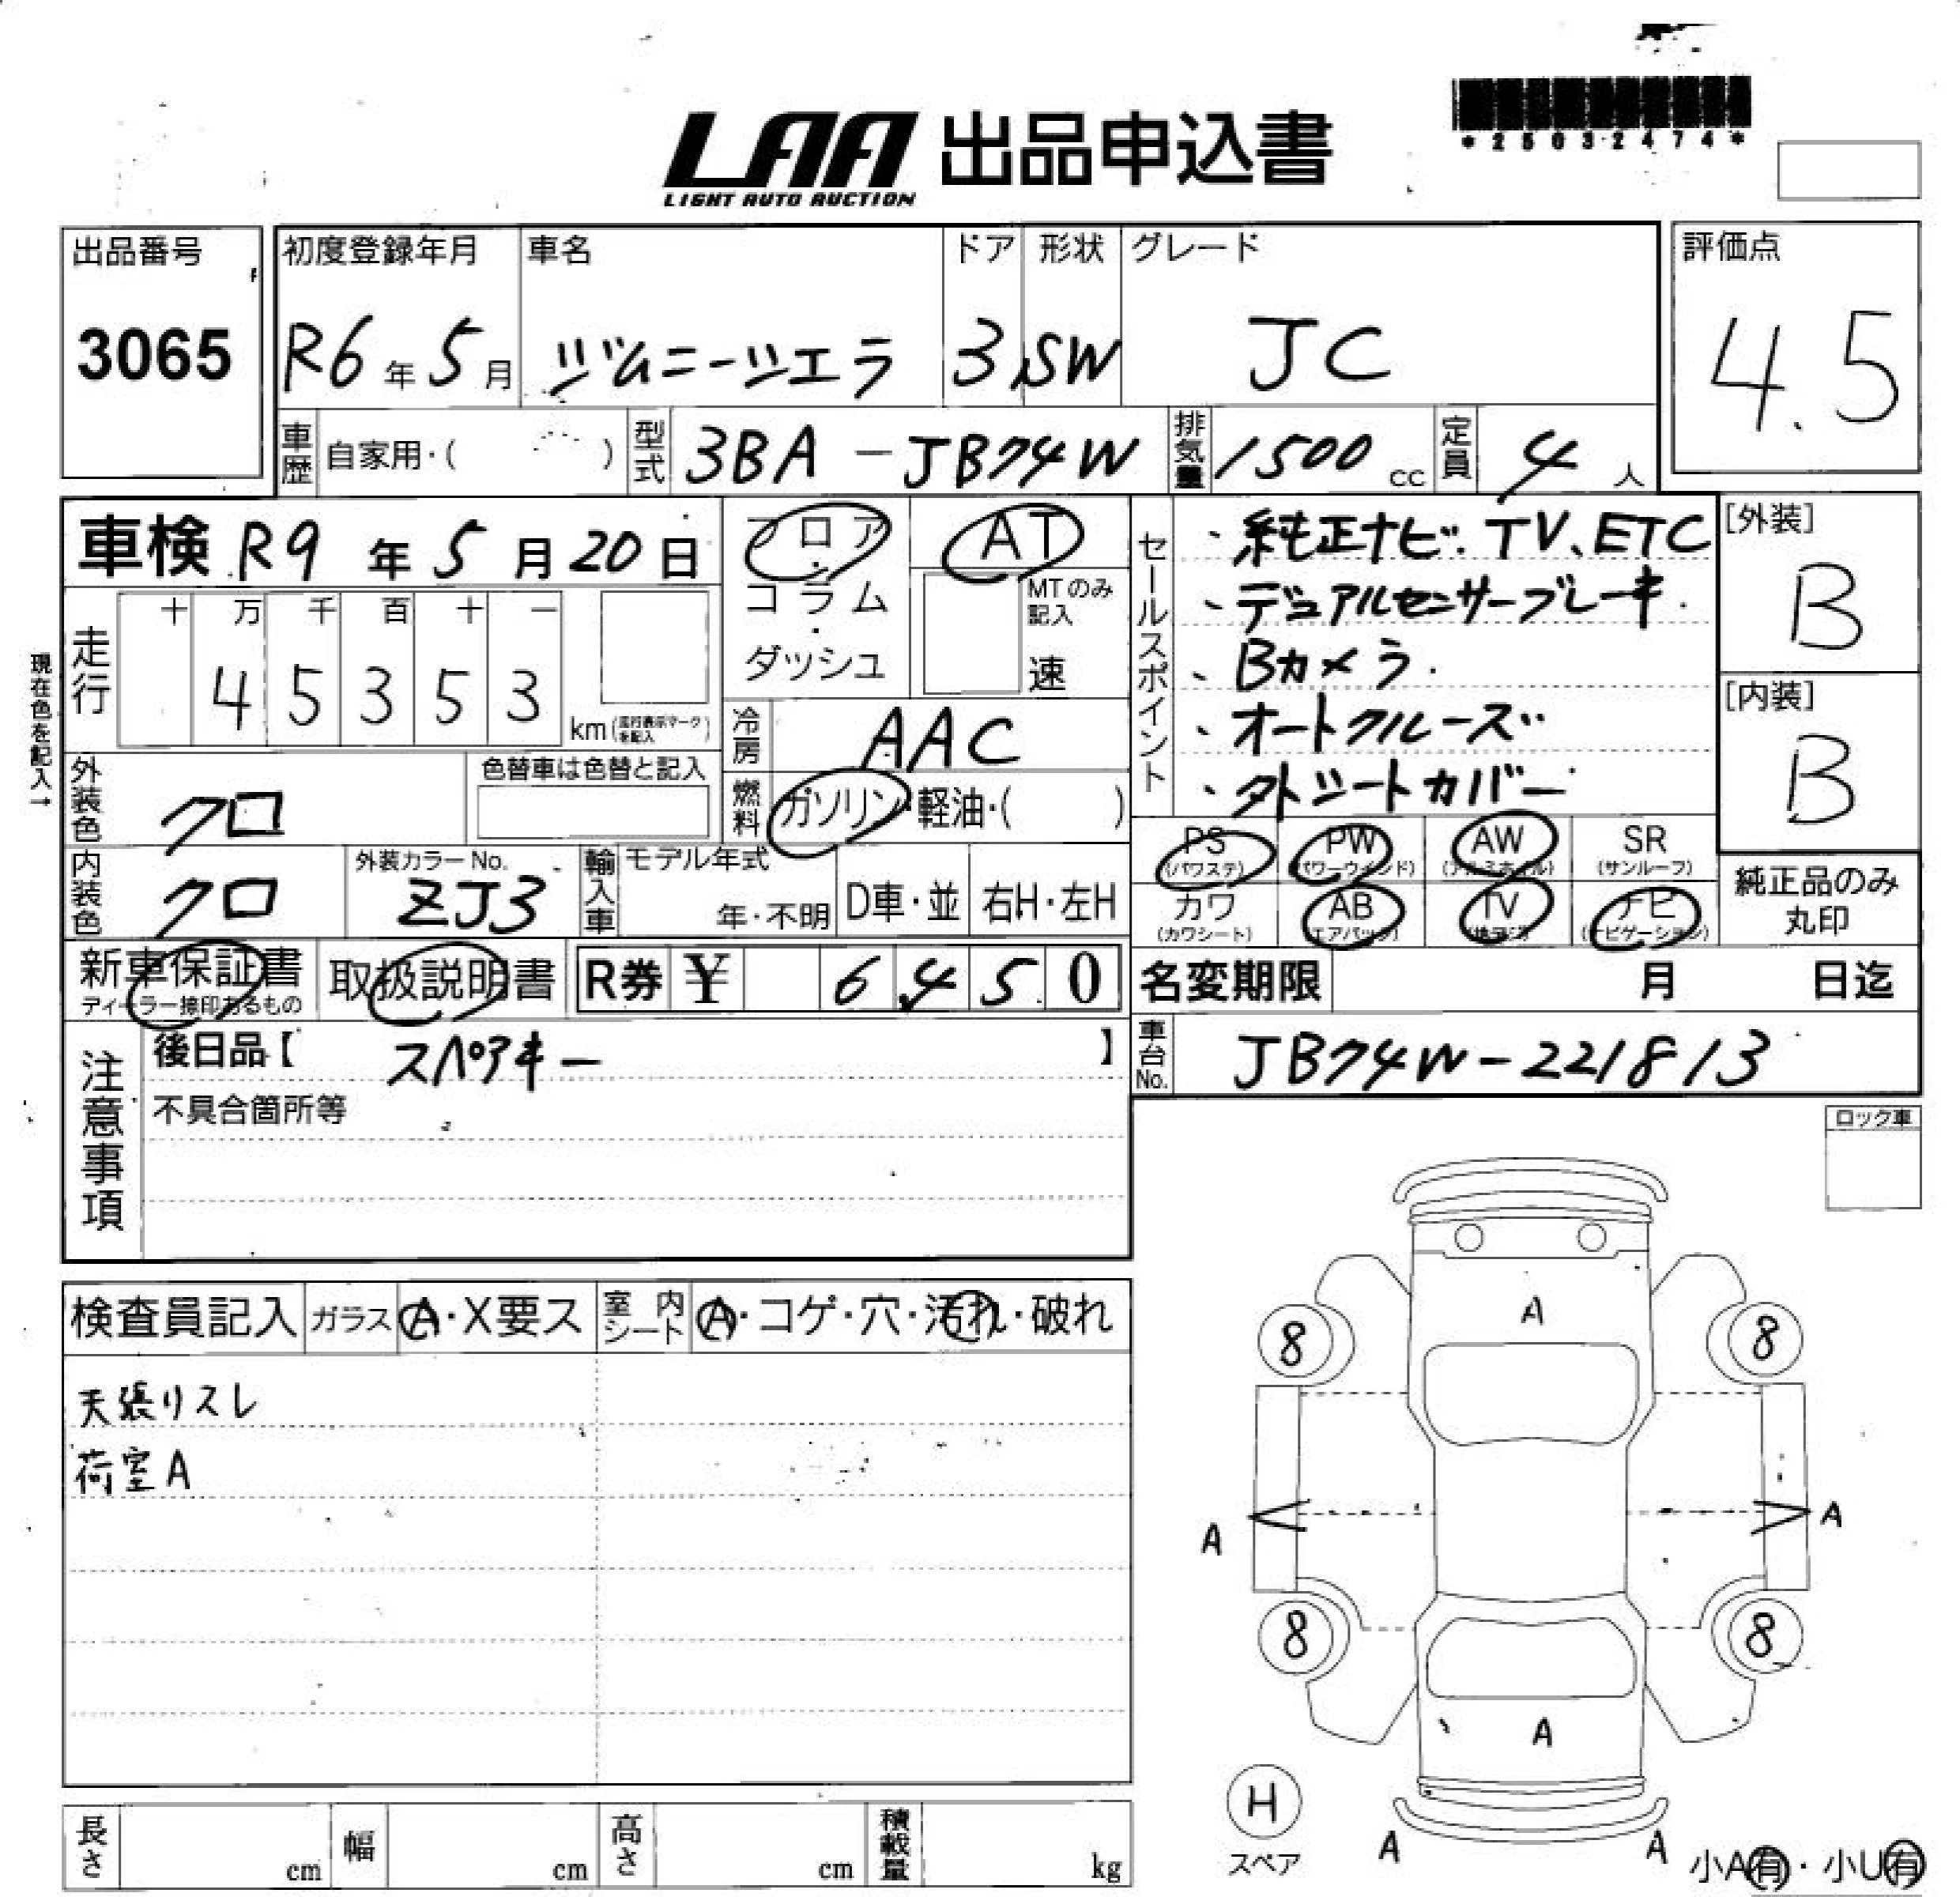 LAA 出品申込書
LIGHT AUTO AUCTION
*25032474*
出品番号
3065
初度登録年月 車名 ドア 形状 グレード
R6年5月 ジムニーシエラ 3 SW JC
評価点
4.5
車歴 自家用・( ) 型式 3BA-JB74W 排気量 1500cc 定員 4人
車検 R9年5月20日
フロア・コラム・ダッシュ
AT
MTのみ記入
速
走行 十 万 千 百 十 一
4 5 3 5 3 km(走行表示マークを記入)
現在色を記入→
冷房 AAC
燃料 ガソリン・軽油・( )
外装色 クロ 色替車は色替と記入
内装色 クロ 外装カラーNo. ZJ3 輸入車 モデル年式 年・不明 D車・並 右H・左H
セールスポイント
・純正ナビ.TV、ETC
、デュアルセンサーブレーキ.
、Bカメラ.
・オートクルーズ
・タトシートカバー
[外装]
B
[内装]
B
PS PW AW SR
(パワステ) (パワーウインド) (アルミホイル) (サンルーフ)
カワ AB TV ナビ
(カワシート) (エアバック) (地デジ) (ナビゲーション)
純正品のみ
丸印
新車保証書 取扱説明書 R券 ¥ 6,450
ディーラー捺印あるもの
名変期限 月 日迄
車台No. JB74W-221813
注意事項
後日品【 スペアキー 】
不具合箇所等
ロック車
検査員記入 ガラス A・X要ス 室内シート A・コゲ・穴・汚れ・破れ
天張りスレ
荷室A
A
8 8
A A
8 8
A
H
スペア
A A
小A有・小U有
長さ cm 幅 cm 高さ cm 積載量 kg